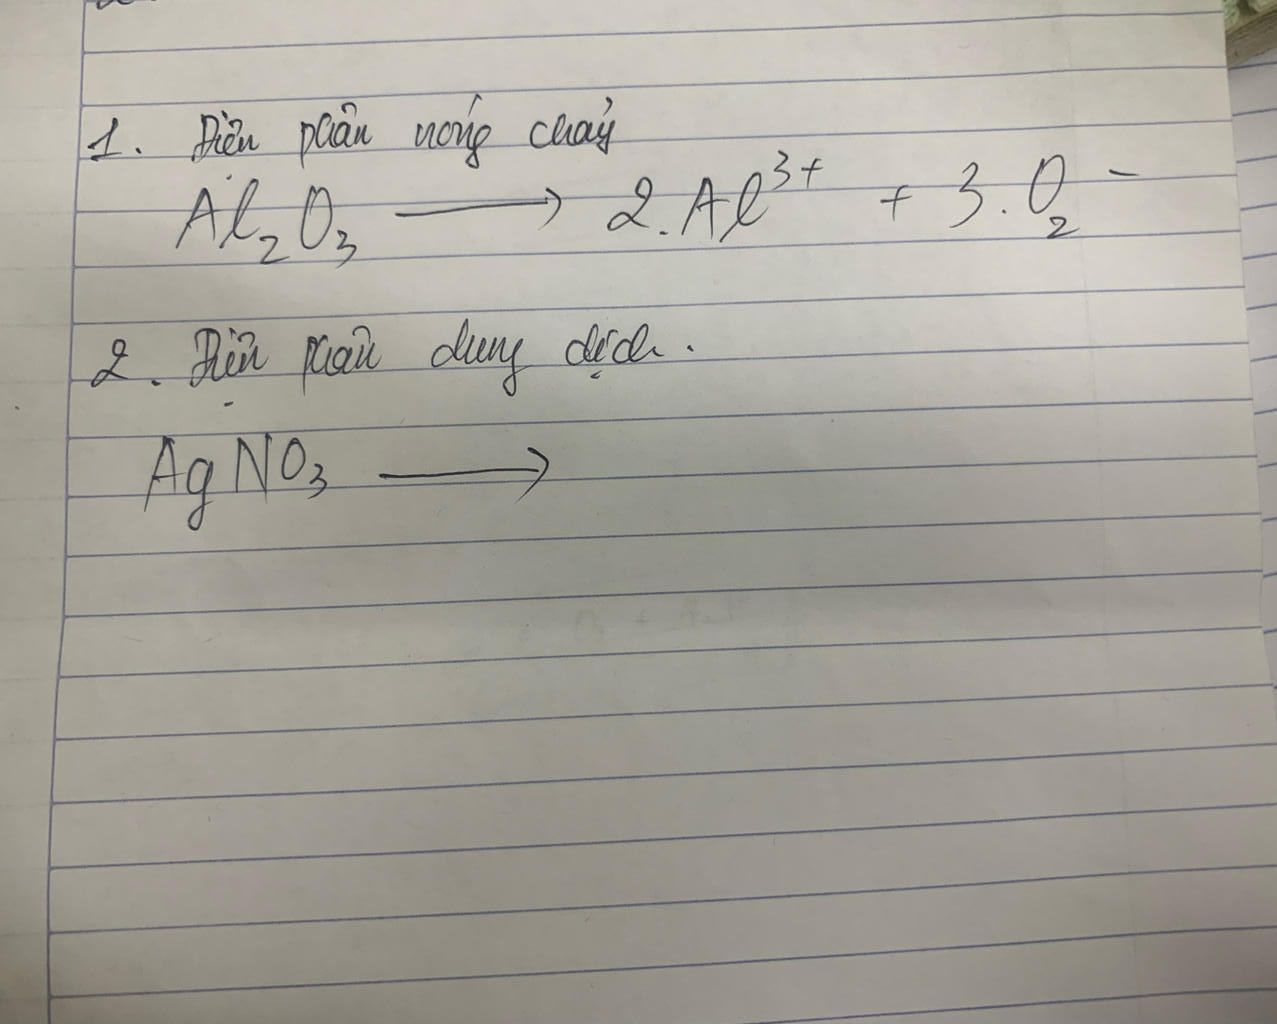 1. Điện phân nóng chảy
Al₂O₃ ⟶ 2.Al³⁺ + 3.O₂⁻
2. Điện phân dung dịch.
AgNO₃ ⟶